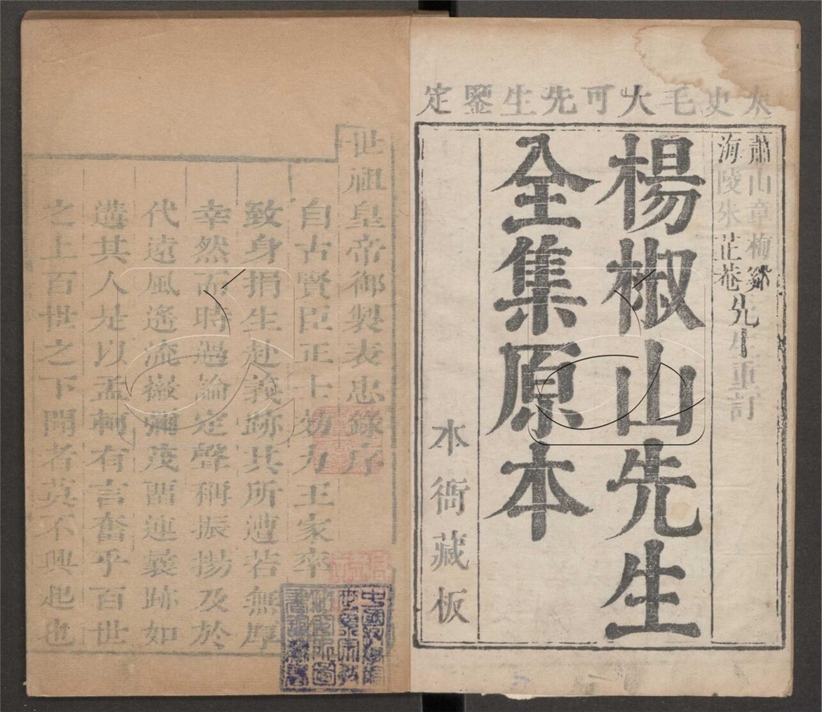 太史毛大可先生鑒定
蕭山章梅谿
海陵朱芷菴
先生重訂
楊椒山先生
全集原本
本衙藏板
世祖皇帝御製表忠錄序
自古賢臣正士効力王家率
致身捐生赴義跡其所遭若無厚
幸然而時過論定聲稱振揚及於
代遠風遙流徽彌茂留連義跡如
遘其人是以孟軻有言奮乎百世
之上百世之下聞者莫不興起也